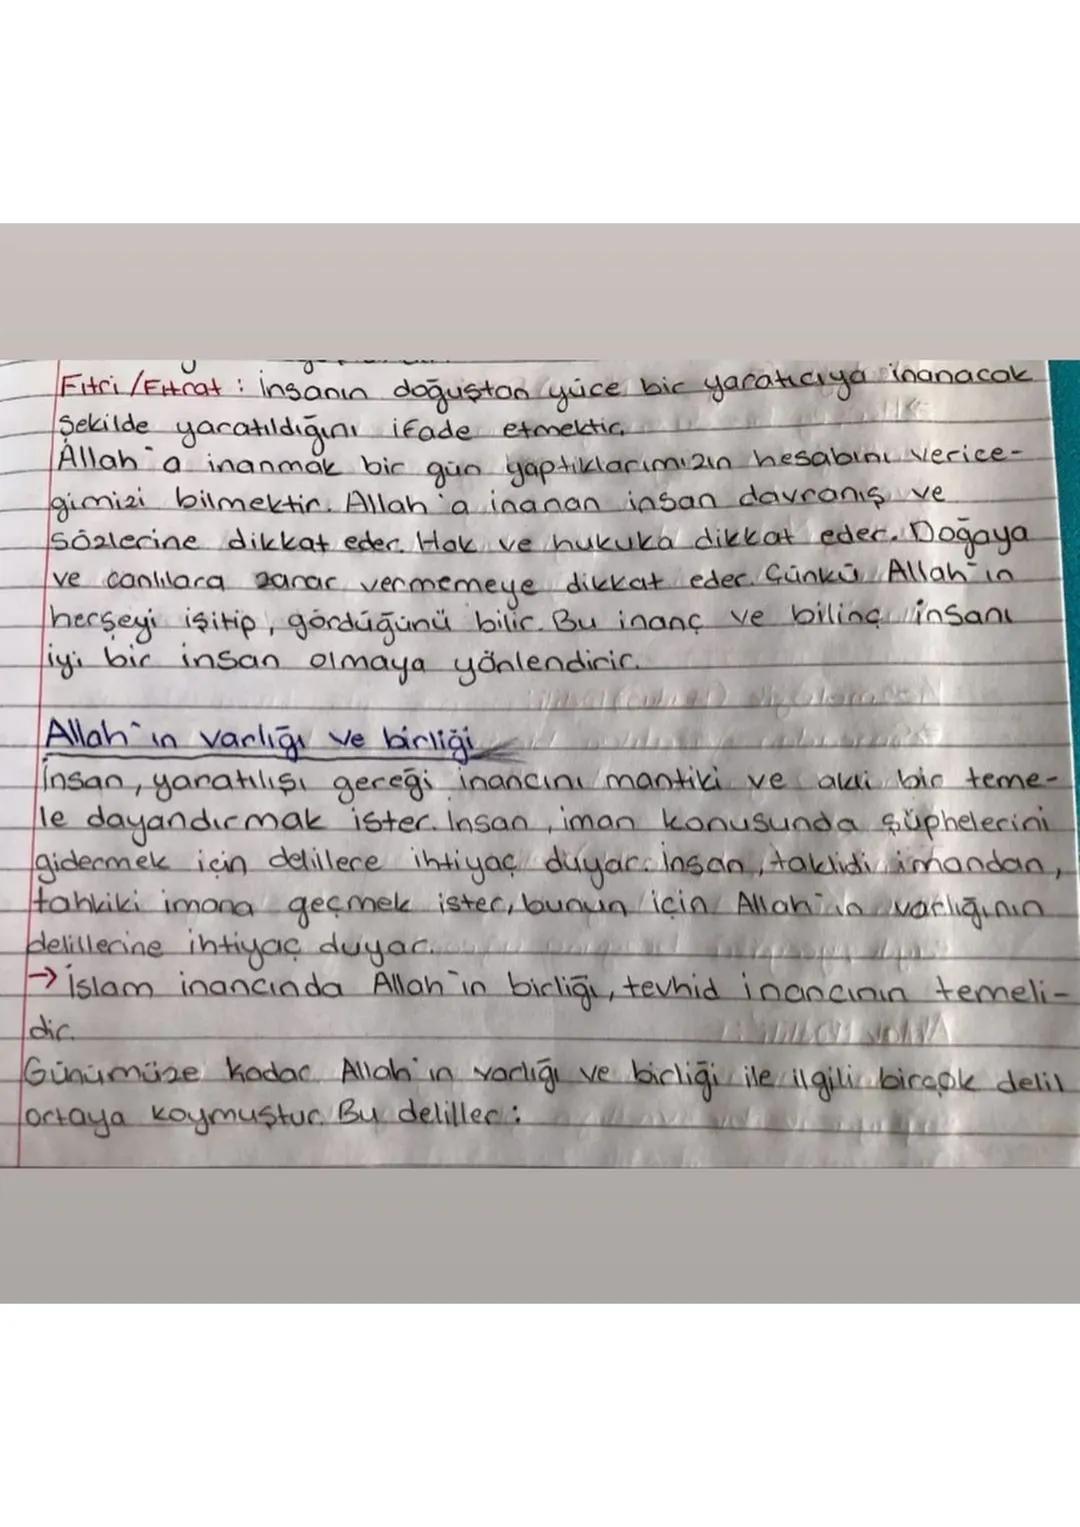 Fıtri/Fıtrat : İnsanın doğuştan yüce bir yaratıcıya inanacak
şekilde yaratıldığını ifade etmektir.
Allah'a inanmak bir gün yaptıklarımızın hesabını verice-
gimizi bilmektir. Allah'a inanan insan davranış ve
sözlerine dikkat eder. Hak ve hukuka dikkat eder. Doğaya
ve canlılara zarar vermemeye dikkat eder. Çünkü Allah'ın
herşeyi işitip, gördüğünü bilir. Bu inanç ve bilinç insanı
iyi bir insan olmaya yönlendirir.
Allah'ın varlığı ve birliği
İnsan, yaratılışı gereği inancını mantiki ve akli bir teme-
le dayandırmak ister. İnsan, iman konusunda şüphelerini
gidermek için delillere ihtiyaç duyar. İnsan, taklidi imandan,
tahkiki imana geçmek ister, bunun için Allah'ın varlığının
delillerine ihtiyaç duyar.
→ İslam inancında Allah'ın birliği, tevhid inancının temeli-
dir.
Günümüze kadar Allah'ın varlığı ve birliği ile ilgili birçok delil
ortaya koymuştur. Bu deliller :